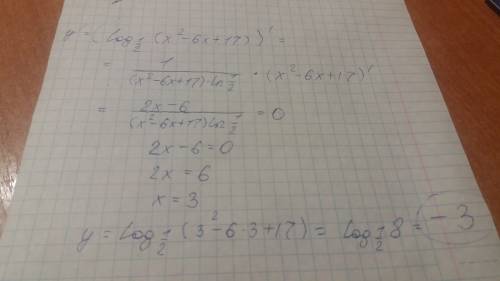 y' = (log_{1/2} (x²-6x+17))' =
= 1/((x²-6x+17)·ln 1/2) · (x²-6x+17)'
= (2x-6)/((x²-6x+17) ln 1/2) = 0
2x-6=0
2x = 6
x = 3
y = log_{1/2} (3²-6·3+17) = log_{1/2} 8 = -3